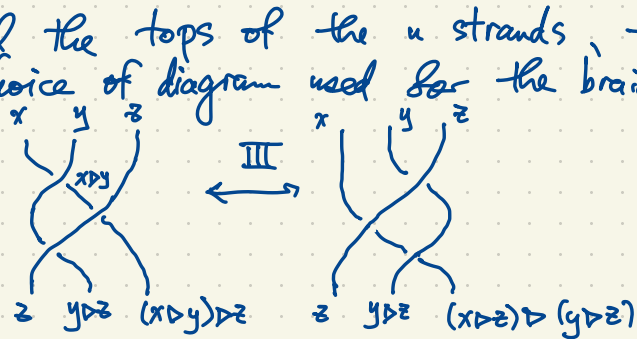 the tops of the n strands,
choice of diagram used for the brai
x y z x y z
x▷y III
z y▷z (x▷y)▷z z y▷z (x▷z)▷(y▷z)